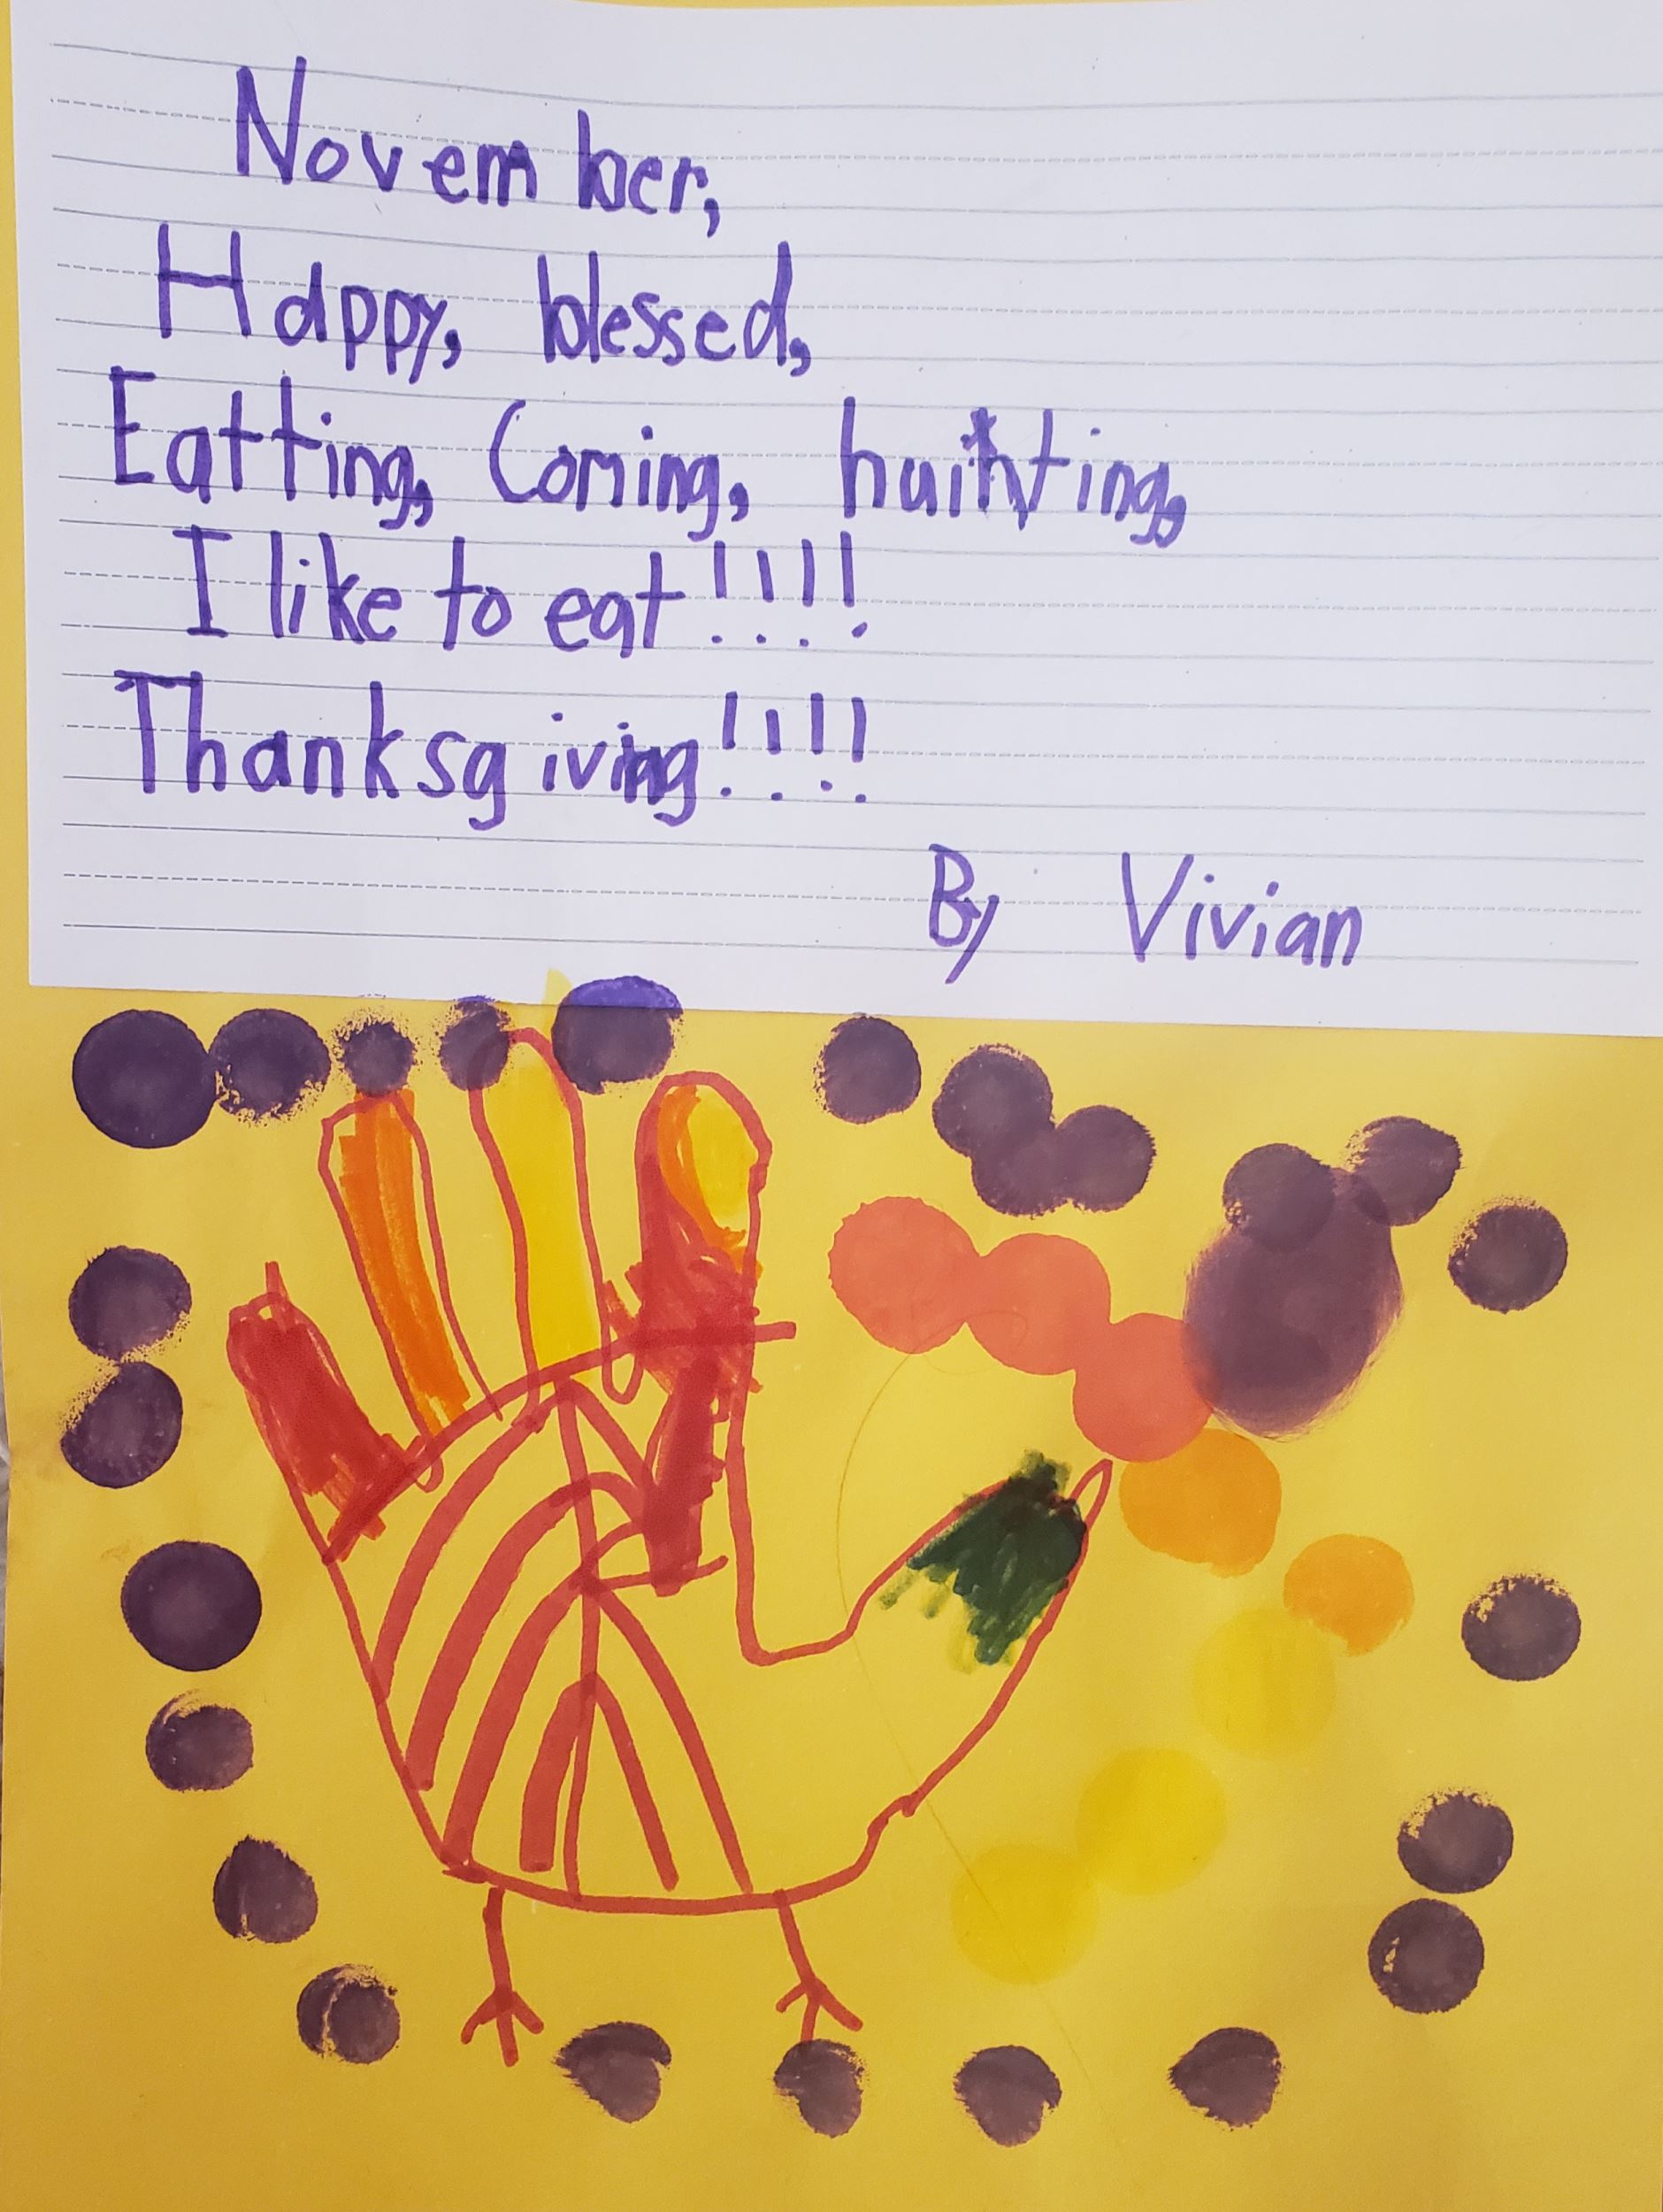 November,
Happy, blessed,
Eatting, Coming, hunting,
I like to eat!!!!
Thanksgiving!!!!
By Vivian